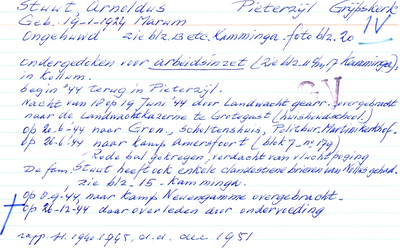 Stuut, Arnoldus Pieterzijl Grijpskerk
Geb. 19-1-1924 Marum
IV
Ongehuwd zie blz. 13 etc. Kamminga. foto blz. 20
ondergedoken voor arbeidsinzet (zie blz. 11 8 m 17 Kamminga),
in Kollum.
begin '44 terug in Pieterzijl.
Nacht van 18 op 19 Juni '44 door Landwacht gearr. overgebracht
naar de Landwachtkazerne te Grotegast (huishoudschool).
Op 20-6-44 naar Gron., Scholtenshuis, Politbur. Martinikerkhof.
Op 26-6-44 naar kamp Amersfoort (blok 7 - no 179)
Rode bal gekregen, verdacht van vluchtpoging
De fam. Stuut heeft ook enkele clandestiene brieven van Nollus gehad.
zie blz. 15 - Kamminga.
Op 8-9-44 naar kamp Neuengamme overgebracht.
Op 26-12-44 daar overleden door ondervoeding
rapp. H. 1940-1945, d.d. dec 1951